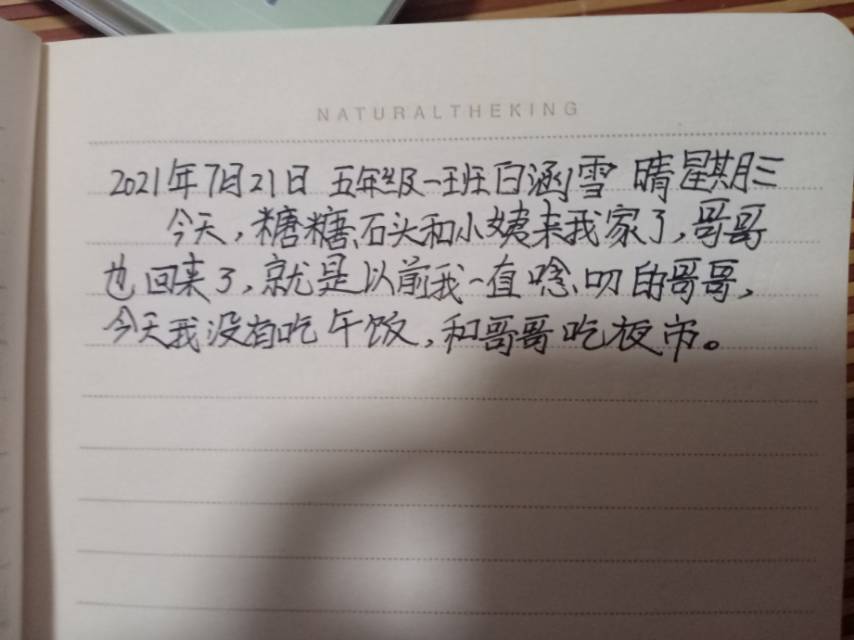 NATURALTHEKING
2021年7月21日 五年级一班白涵雪 晴星期三
今天，糖糖、石头和小姨来我家了，哥哥
也回来了，就是以前我一直唸叨的哥哥，
今天我没有吃午饭，和哥哥吃夜市。